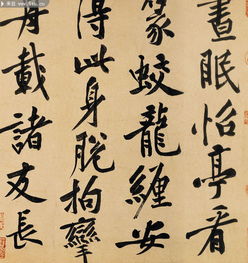 晝眠怡亭看
篆蛟龍纏安
得此身脫拘攣
舟載諸友長